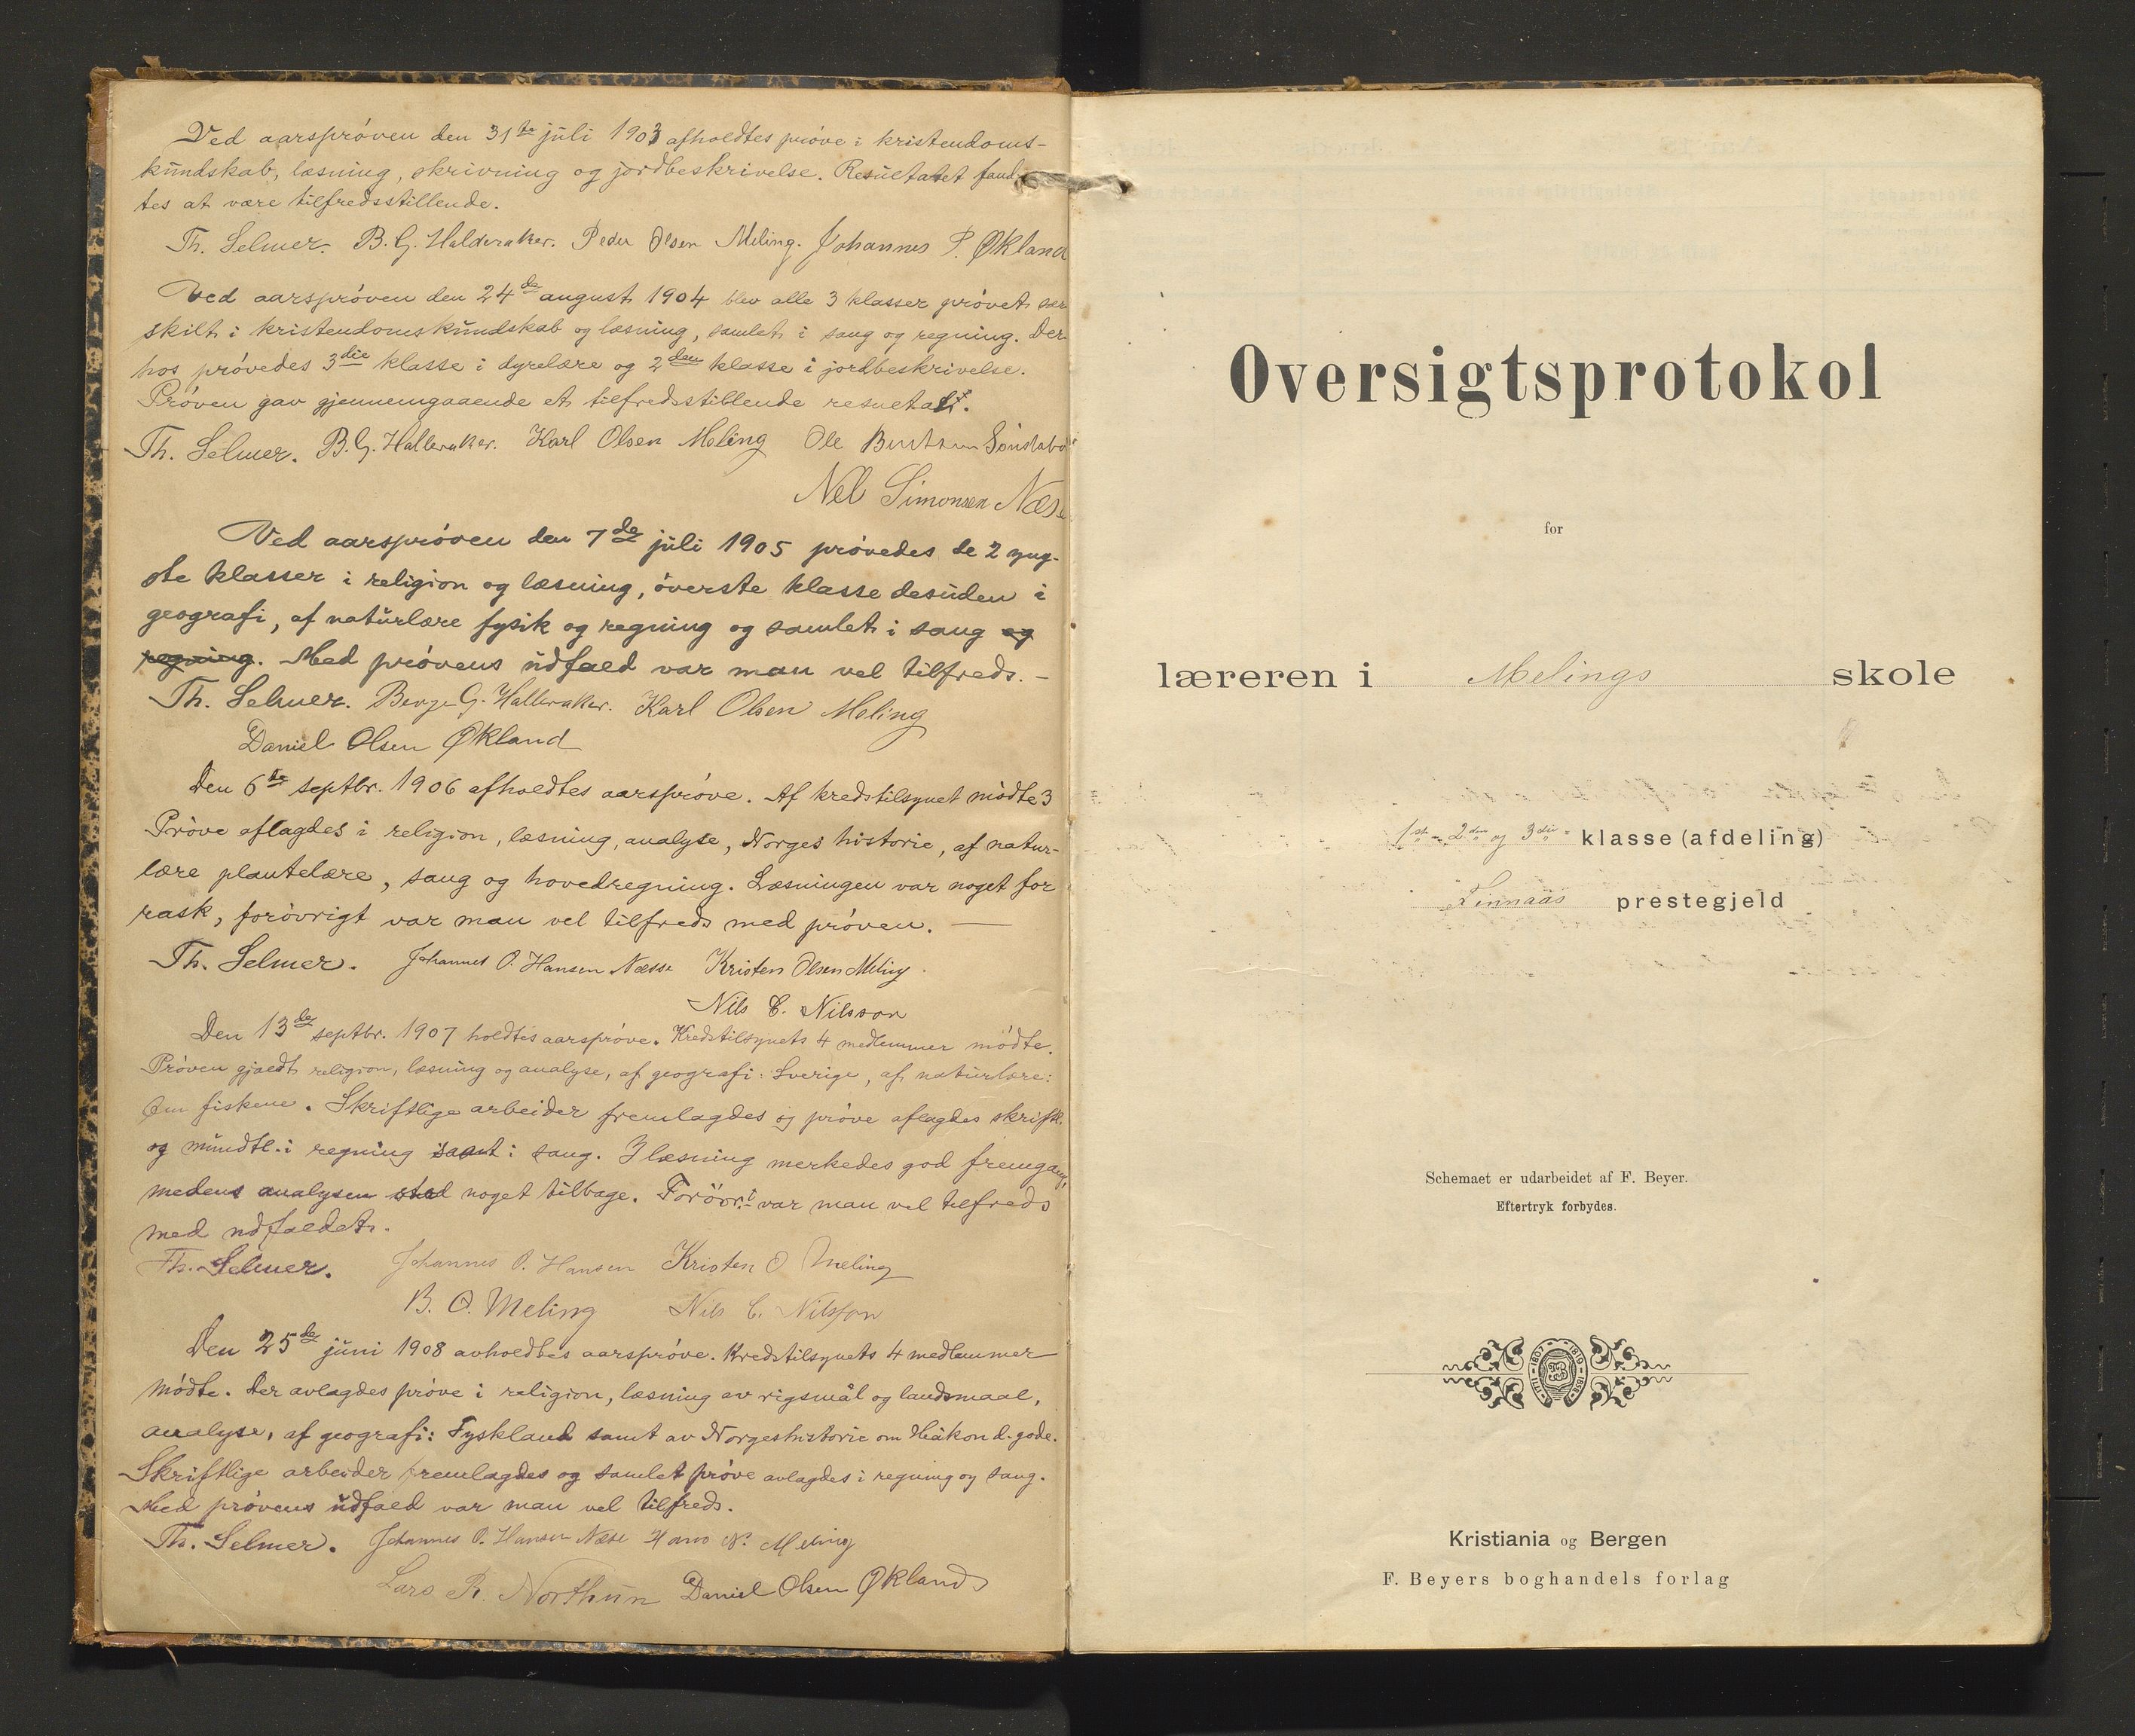 Ved aarsprøven den 31te juli 1903 afholdtes prøve i kristendoms-
kundskab, læsning, skrivning og jordbeskrivelse. Resultatet fand-
tes at være tilfredsstillende.
Th. Selmer. B. G. Halderaker. Peder Olsen Meling. Johannes P. Økland
Ved aarsprøven den 24de august 1904 blev alle 3 klasser prøvet sær
skilt i kristendomskundskab og læsning, samlet i sang og regning. Der-
hos prøvedes 3die klasse i dyrelære og 2den klasse i jordbeskrivelse.
Prøven gav gjennemgaaende et tilfredsstillende resultat.
Th. Selmer. B. G. Halleraker. Karl Olsen Meling Ole
Nel Simonsen Næse
Ved aarsprøven den 7de juli 1905 prøvedes de 2 yng-
ste klasser i religion og læsning, øverste klasse desuden i
geografi, af naturlære fysik og regning og samlet i sang og
regning. Med prøvens udfald var man vel tilfreds. -
Th. Selmer. Berge G. Halleraker. Karl Olsen Meling
Daniel Olsen Økland
Den 6te septbr. 1906 afholdtes aarsprøve. Af kredstilsynet mødte 3
Prøve aflagdes i religion, læsning, analyse, Norges historie, af natur-
lære plantelære, sang og hovedregning. Læsningen var noget for
rask, forøvrigt var man vel tilfreds med prøven. —
Th. Selmer. Johannes O. Hansen Næsse Kristen Olsen Meling.
Nils C. Nilsson
Den 13de septbr. 1907 holdtes aarsprøve. Kredstilsynets 4 medlemmer mødte.
Prøven gjaldt religion, læsning og analyse, af geografi: Sverige, af naturlære:
Om fiskene. Skriftlige arbeider fremlagdes og prøve aflagdes skriftl.
og mundtl. i regning samt i sang. I læsning merkedes god fremgang,
medens analysen stod noget tilbage. Forøvr. var man vel tilfreds
med udfaldet.
Th. Selmer. Johannes O. Hansen Kristen O Meling
B. O. Meling Nils C. Nilsson
Den 25de juni 1908 avholdtes aarsprøve. Kredstilsynets 4 medlemmer
mødte. Der avlagdes prøve i religion, læsning av rigsmål og landsmaal,
analyse, af geografi: Tyskland samt av Norgeshistorie om Håkon d. gode.
Skriftlige arbeider fremlagdes og samlet prøve avlagdes i regning og sang.
Med prøvens udfald var man vel tilfreds.
Th. Selmer. Johannes O. Hansen Næse Hans N. Meling
Lars R. Northun Daniel Olsen Økland
Oversigtsprotokol
for
læreren i Melings skole
1ste 2den og 3die klasse (afdeling)
Linnaas prestegjeld
Schemaet er udarbeidet af F. Beyer.
Eftertryk forbydes.
Kristiania og Bergen
F. Beyers boghandels forlag